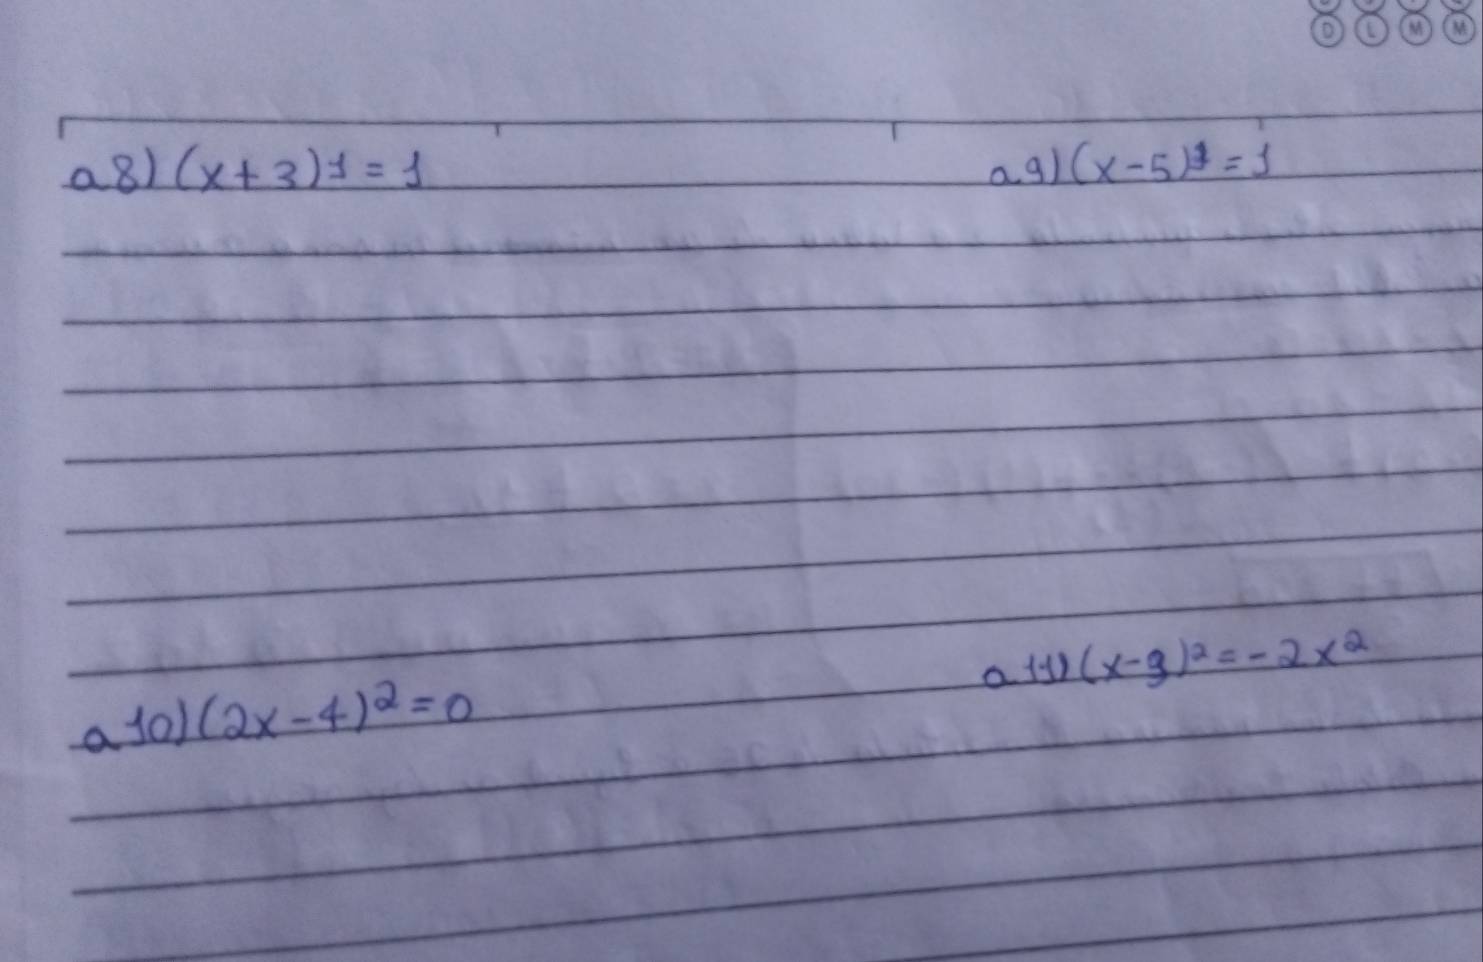 D L M M
a8) (x+3)1 = 1
a9) (x-5)1 = 1
a10) (2x-4)² = 0
a11) (x-3)² = -2x²